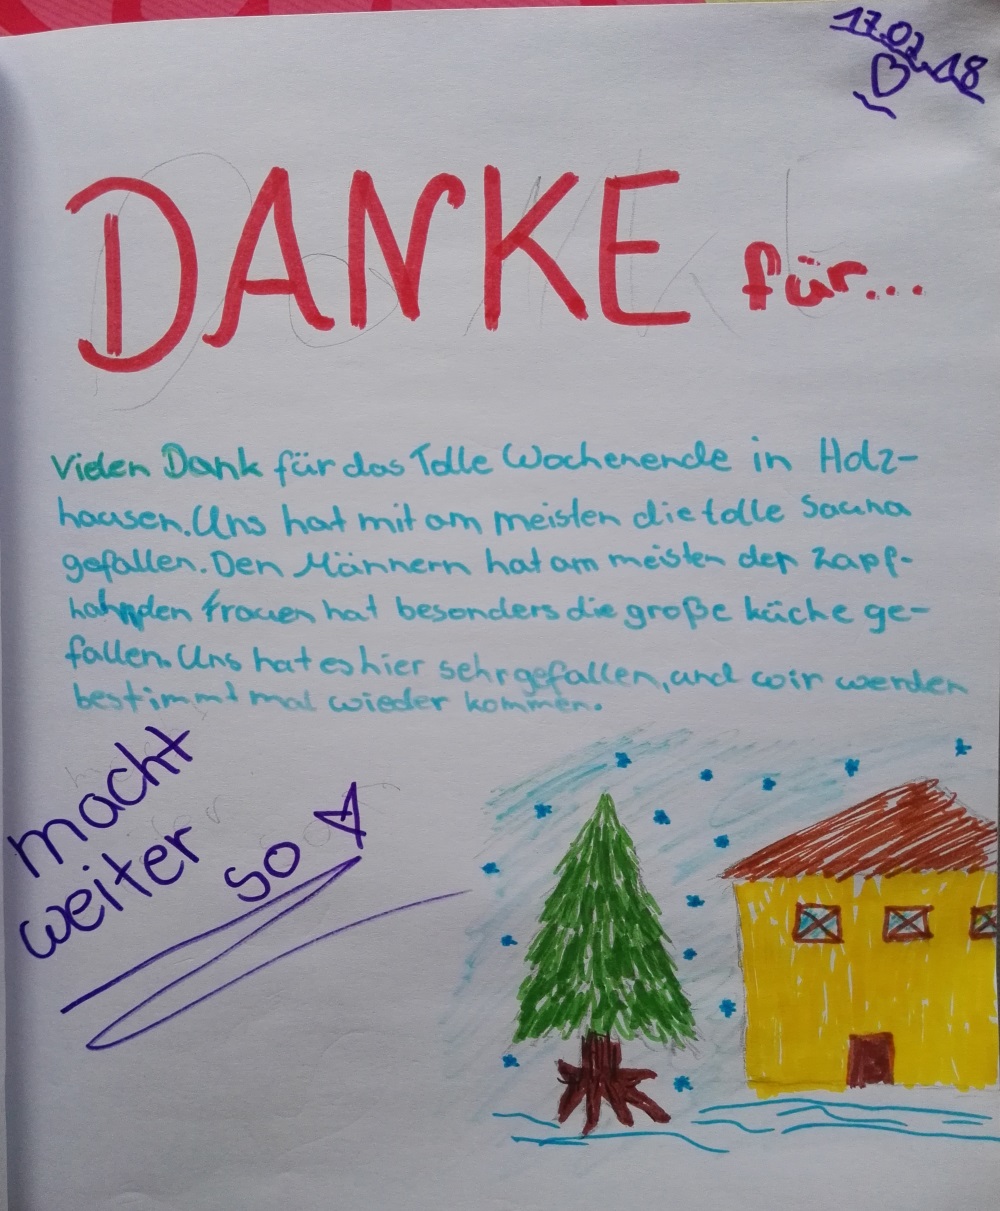 17.02.18
DANKE für...
Vielen Dank für das Tolle Wochenende in Holz-
hausen. Uns hat mit am meisten die tolle Sauna
gefallen. Den Männern hat am meisten der Zapf-
hahn, den Frauen hat besonders die große küche ge-
fallen. Uns hat es hier sehr gefallen, und wir werden
bestimmt mal wieder kommen.
macht
weiter
so